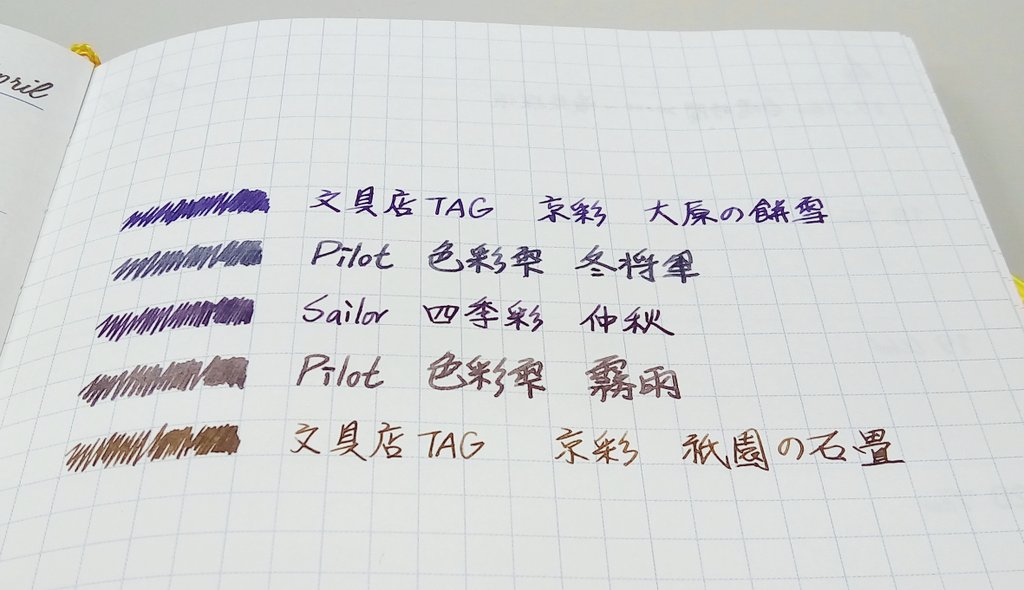 pril
文具店TAG 京彩 大原の餅雪
Pilot 色彩雫 冬将軍
Sailor 四季彩 仲秋
Pilot 色彩雫 霧雨
文具店TAG 京彩 祇園の石畳